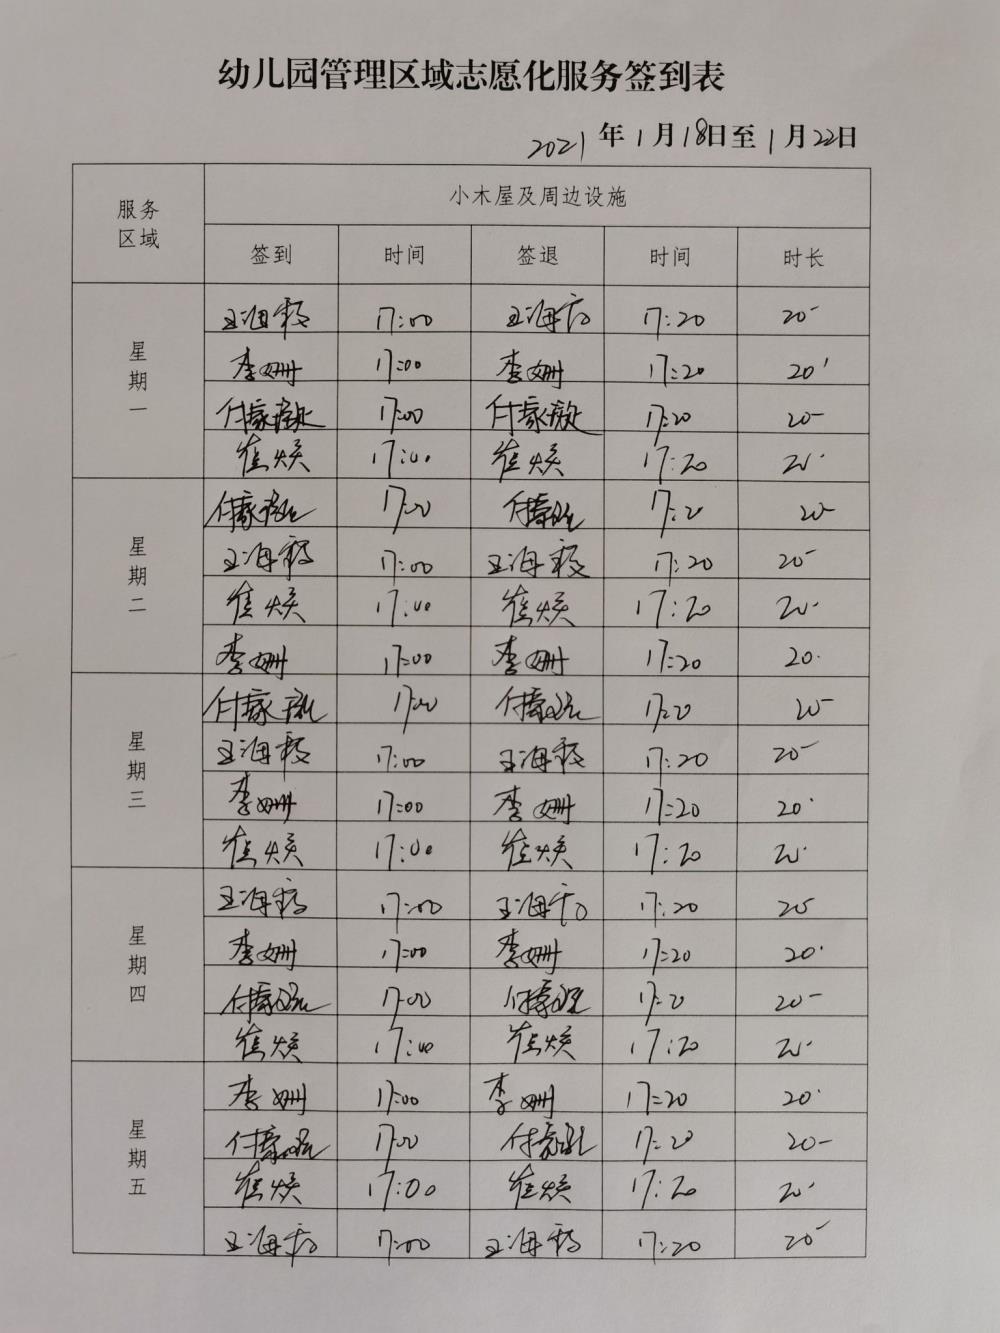 幼儿园管理区域志愿化服务签到表
2021年1月18日至1月22日
服务区域 小木屋及周边设施
签到 时间 签退 时间 时长
星期一
王海霞 17:00 王海霞 17:20 20'
李姗 17:00 李姗 17:20 20'
付豪 17:00 付豪 17:20 20'
崔焕 17:00 崔焕 17:20 20'
星期二
付豪 17:00 付豪 17:20 20'
王海霞 17:00 王海霞 17:20 20'
崔焕 17:00 崔焕 17:20 20'
李姗 17:00 李姗 17:20 20'
星期三
付豪 17:00 付豪 17:20 20'
王海霞 17:00 王海霞 17:20 20'
李姗 17:00 李姗 17:20 20'
崔焕 17:00 崔焕 17:20 20'
星期四
王海霞 17:00 王海霞 17:20 20'
李姗 17:00 李姗 17:20 20'
付豪 17:00 付豪 17:20 20'
崔焕 17:00 崔焕 17:20 20'
星期五
李姗 17:00 李姗 17:20 20'
付豪 17:00 付豪 17:20 20'
崔焕 17:00 崔焕 17:20 20'
王海霞 17:00 王海霞 17:20 20'